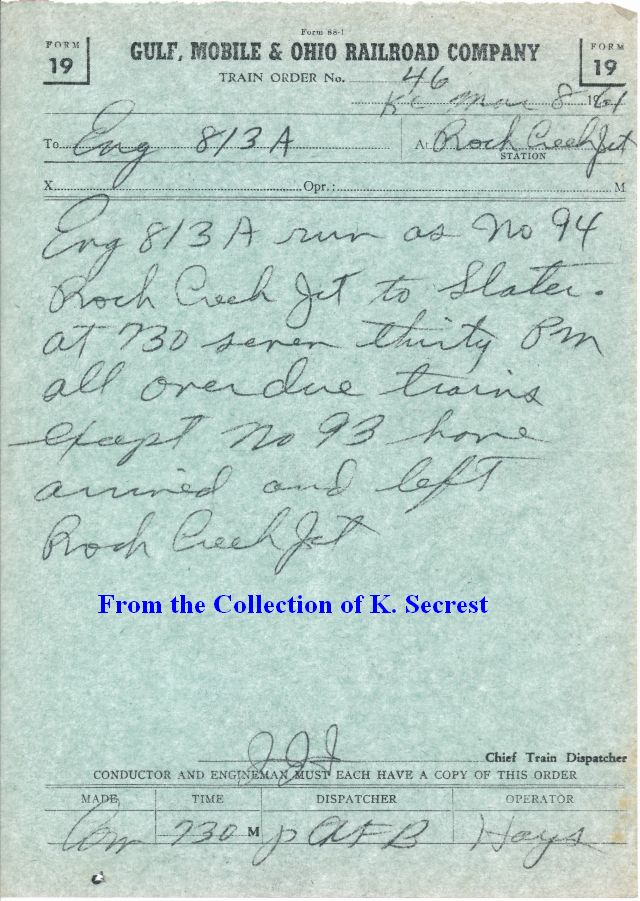 Form 88-1
FORM 19
GULF, MOBILE & OHIO RAILROAD COMPANY
FORM 19
TRAIN ORDER No. 46
KC Mar 8 1961
To Eng 813A At Rock Creek Jct
STATION
X Opr.: M
Eng 813A run as No 94
Rock Creek Jct to Slater.
at 730 seven thirty PM
all overdue trains
except No 93 have
arrived and left
Rock Creek Jct
From the Collection of K. Secrest
Chief Train Dispatcher
CONDUCTOR AND ENGINEMAN MUST EACH HAVE A COPY OF THIS ORDER
MADE TIME DISPATCHER OPERATOR
Com 730 M Hays